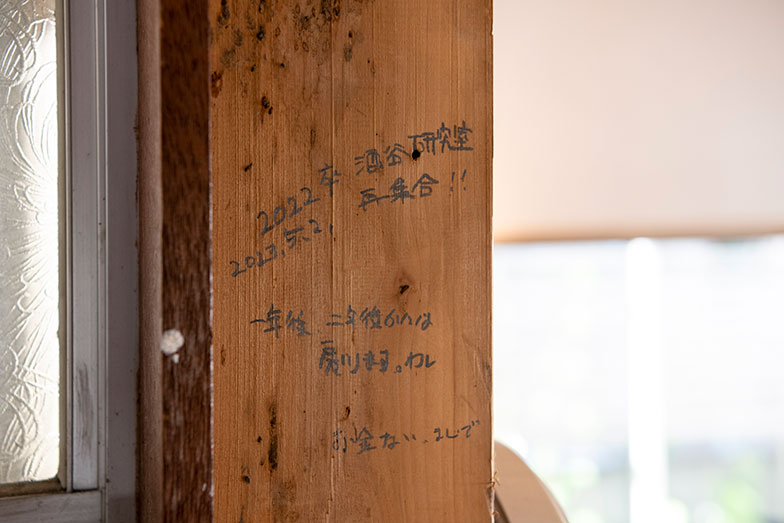 2022卒 酒谷研究室
2023.5.2. 再集合!!
一年後 二年後かには
戻ります。わし
お金ない